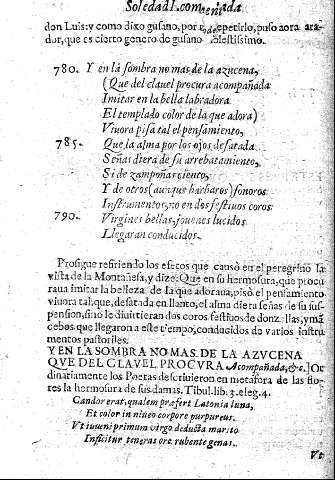 Soledad I. comentada
don Luis: y como dixo gusano, por no repetirlo, puso aora ara-
dor, que es cierto genero de gusano delestissimo.
780. Y en la sombra no mas de la azucena,
(Que del clauel procura acompañada
Imitar en la bella labradora
El templado color de la que adora)
Viuora pisa tal el pensamiento,
785. Que la alma por los ojos desatada
Señas diera de su arrebatamiento,
Si de zampoñas ciento,
Y de otros (aunque barbaros) sonoros
Instrumentos, no en dos festiuos coros
790. Virgines bellas, jouenes lucidos
Llegaran conducidos.
Prosigue refiriendo los efetos que causò en el peregrino la
vista de la Montañesa, y dize: Que en su hermosura, que procu
raua imitar la belleza de la que adoraua, pisò el pensamiento
viuora tal, que, desatada en llanto, el alma diera señas de su sus-
pension, sino le diuirtieran dos coros festiuos de donzellas, y mā
cebos que llegaron a este tiempo, conducidos de varios instru-
mentos pastoriles.
Y EN LA SOMBRA NO MAS. DE LA AZVCENA
QVE DEL CLAVEL PROCVRA Acompañada, &c.] Or
dinariamente los Poetas descriuieron en metafora de las flo-
res la hermosura de sus damas. Tibul. lib. 3. eleg. 4.
Candor erat, qualem præfert Latonia luna,
Et color in niueo corpore purpureus.
Vt iuueni primum virgo deducta marito
Inficitur teneras ore rubente genas.
Vt